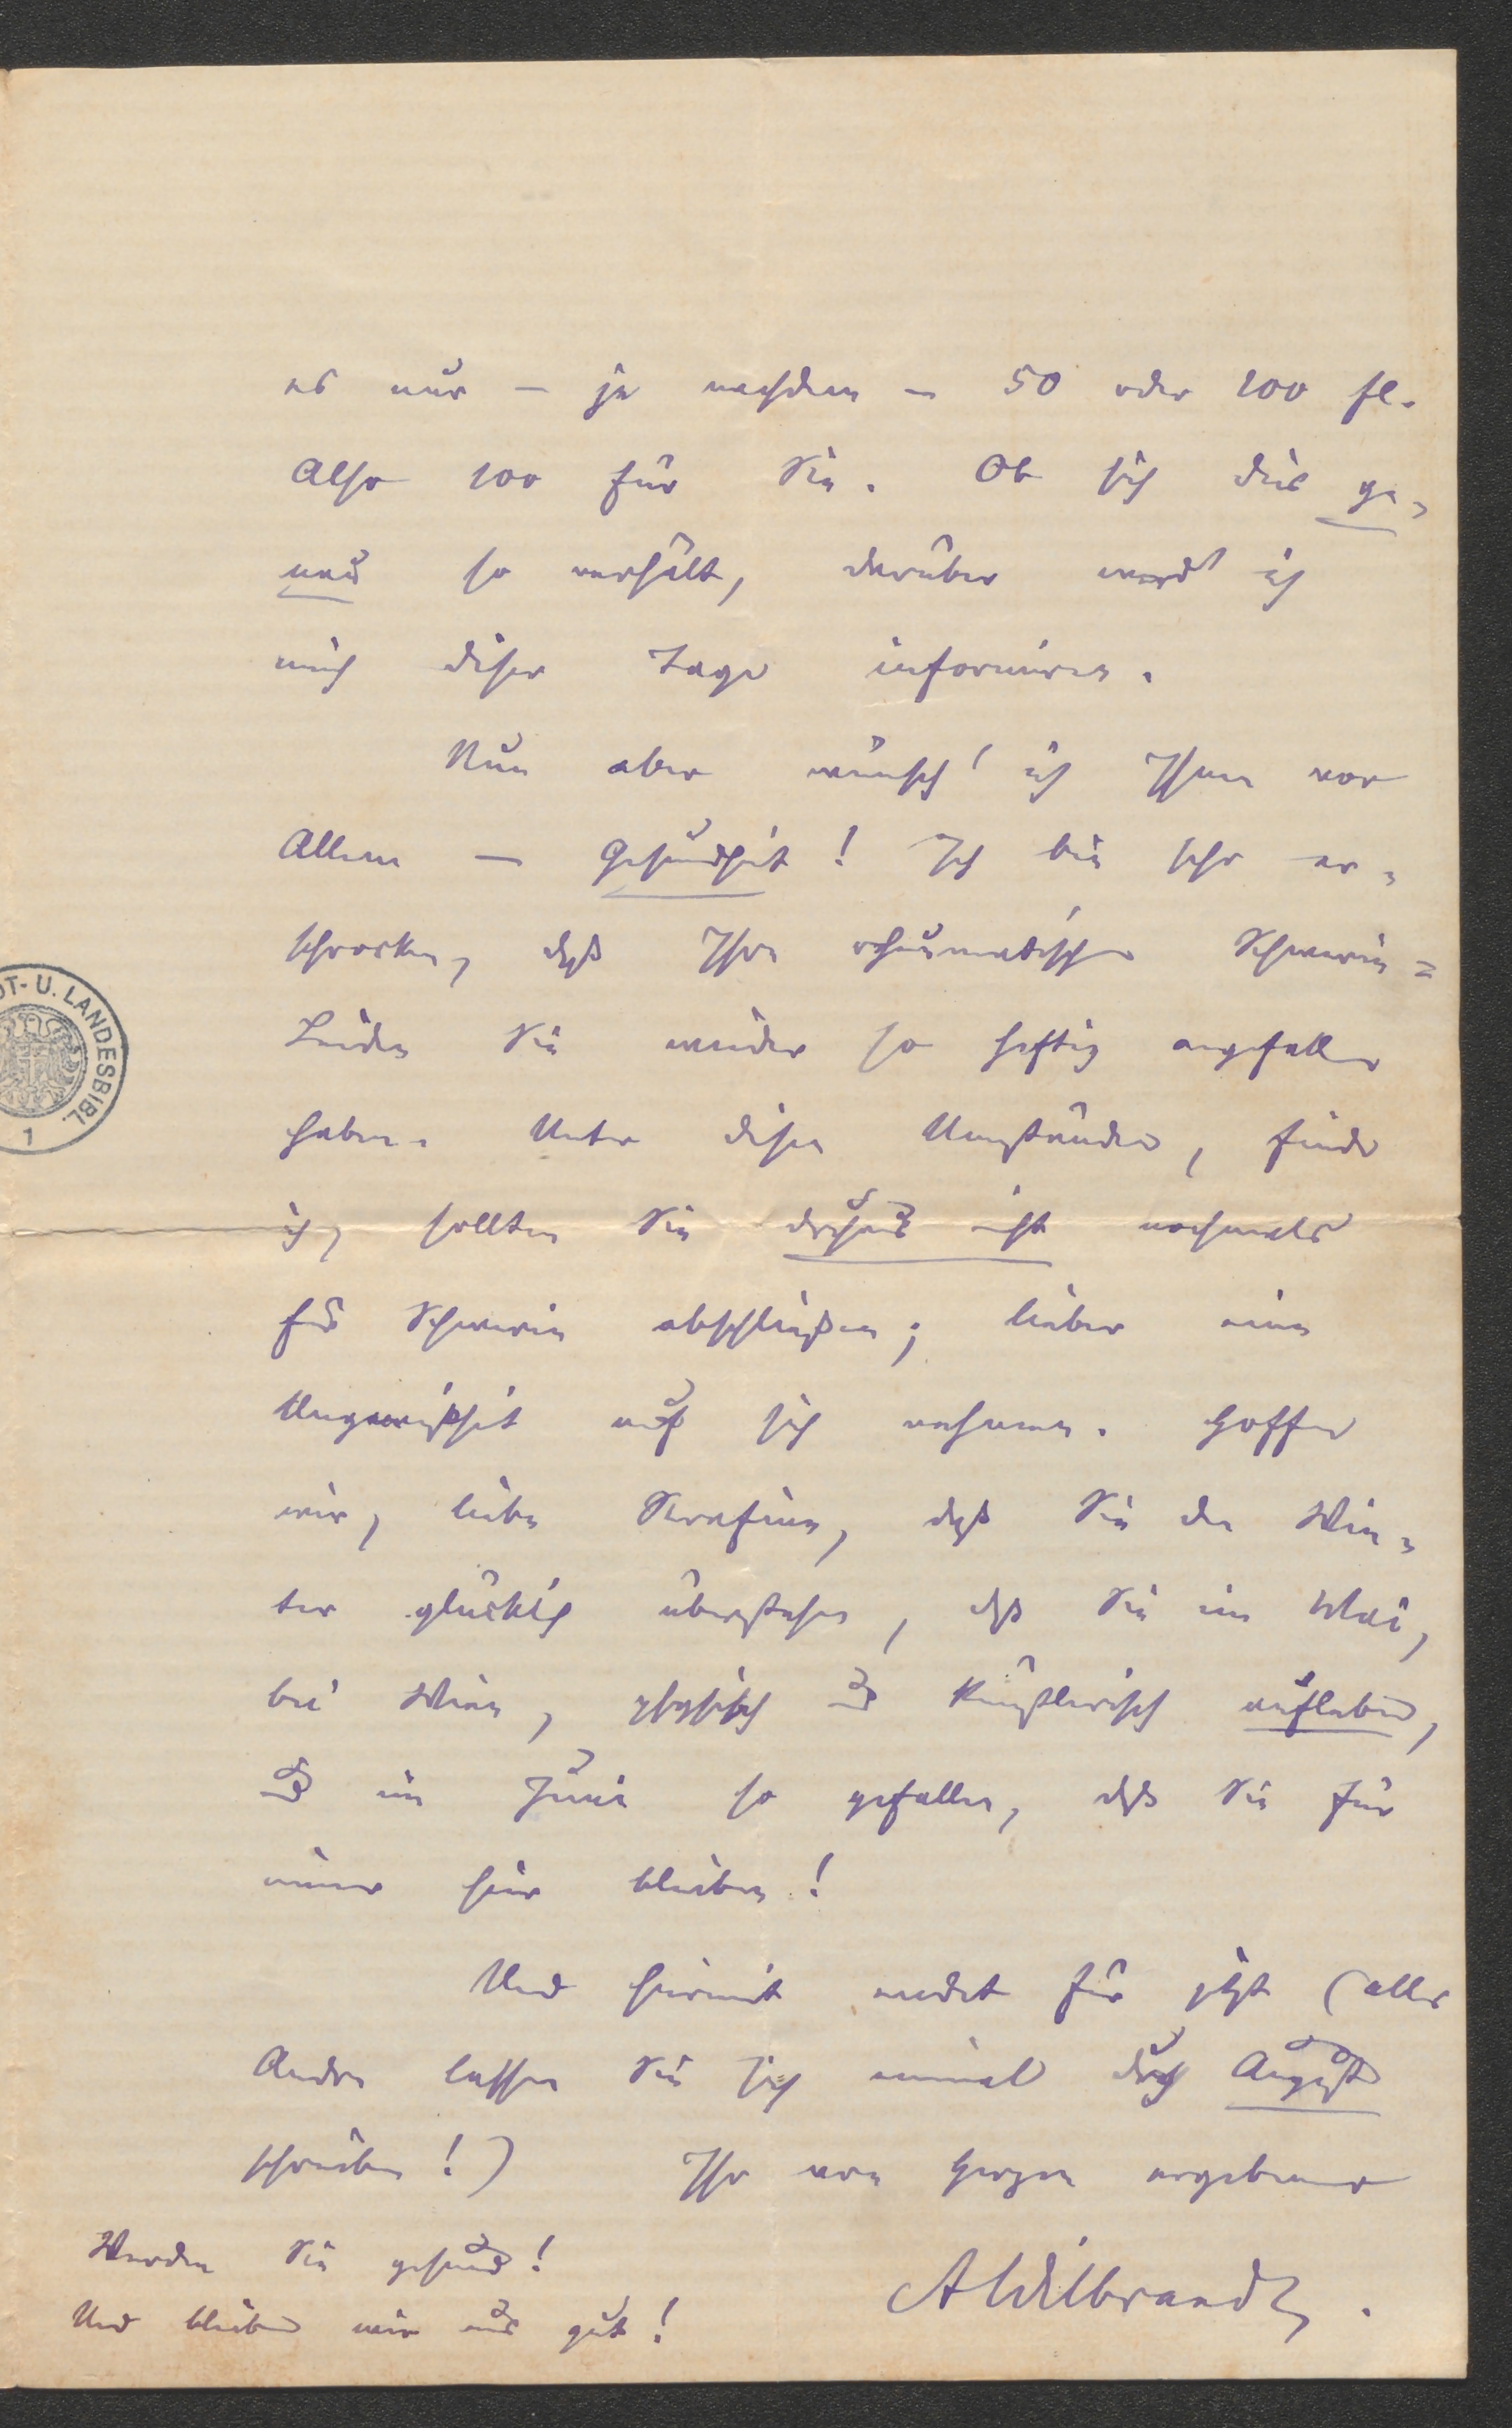 es nur – je nachdem – 50 oder 100 fl.
Also 100 für Sie. Ob sich dies ge-
nau so verhält, darüber werd' ich
mich dieser Tage informiren.
Nun aber wünsch' ich Ihnen vor
Allem – Gesundheit! Ich bin sehr er-
schrocken, daß Ihre rheumatischen Schwerin=
Leiden Sie wieder so heftig angefallen
haben. Unter diesen Umständen, finde
ich, sollten Sie durchaus nicht nochmals
für Schwerin abschließen; lieber eine
Ungewißheit auf sich nehmen. Hoffen
wir, liebe Serafine, daß Sie den Win-
ter glücklich überstehen, daß Sie im Mai,
bei Wien, physisch u künstlerisch aufleben,
u im Juni so gefallen, daß Sie für
immer hier bleiben!
Und hiermit endet für jetzt (alles
Andre lassen Sie sich einmal durch August
schreiben!) Ihr von Herzen ergebener
AWilbrandt.
Werden Sie gesund!
Und bleiben mir nur gut!
DT- U. LANDESBIBL.
1